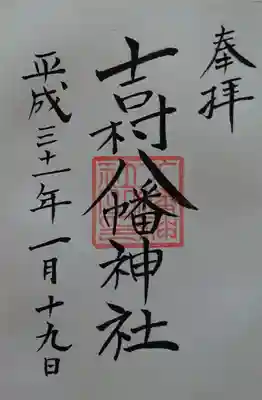 奉拝
吉村八幡神社
平成三十一年一月十九日